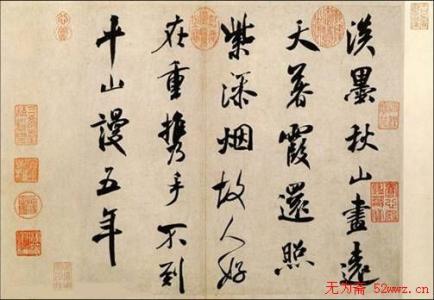 淡墨秋山畫遠
天暮霞還照
紫添烟故人好
在重攜手不到
平山謾五年
无为斋 52wwz.cn